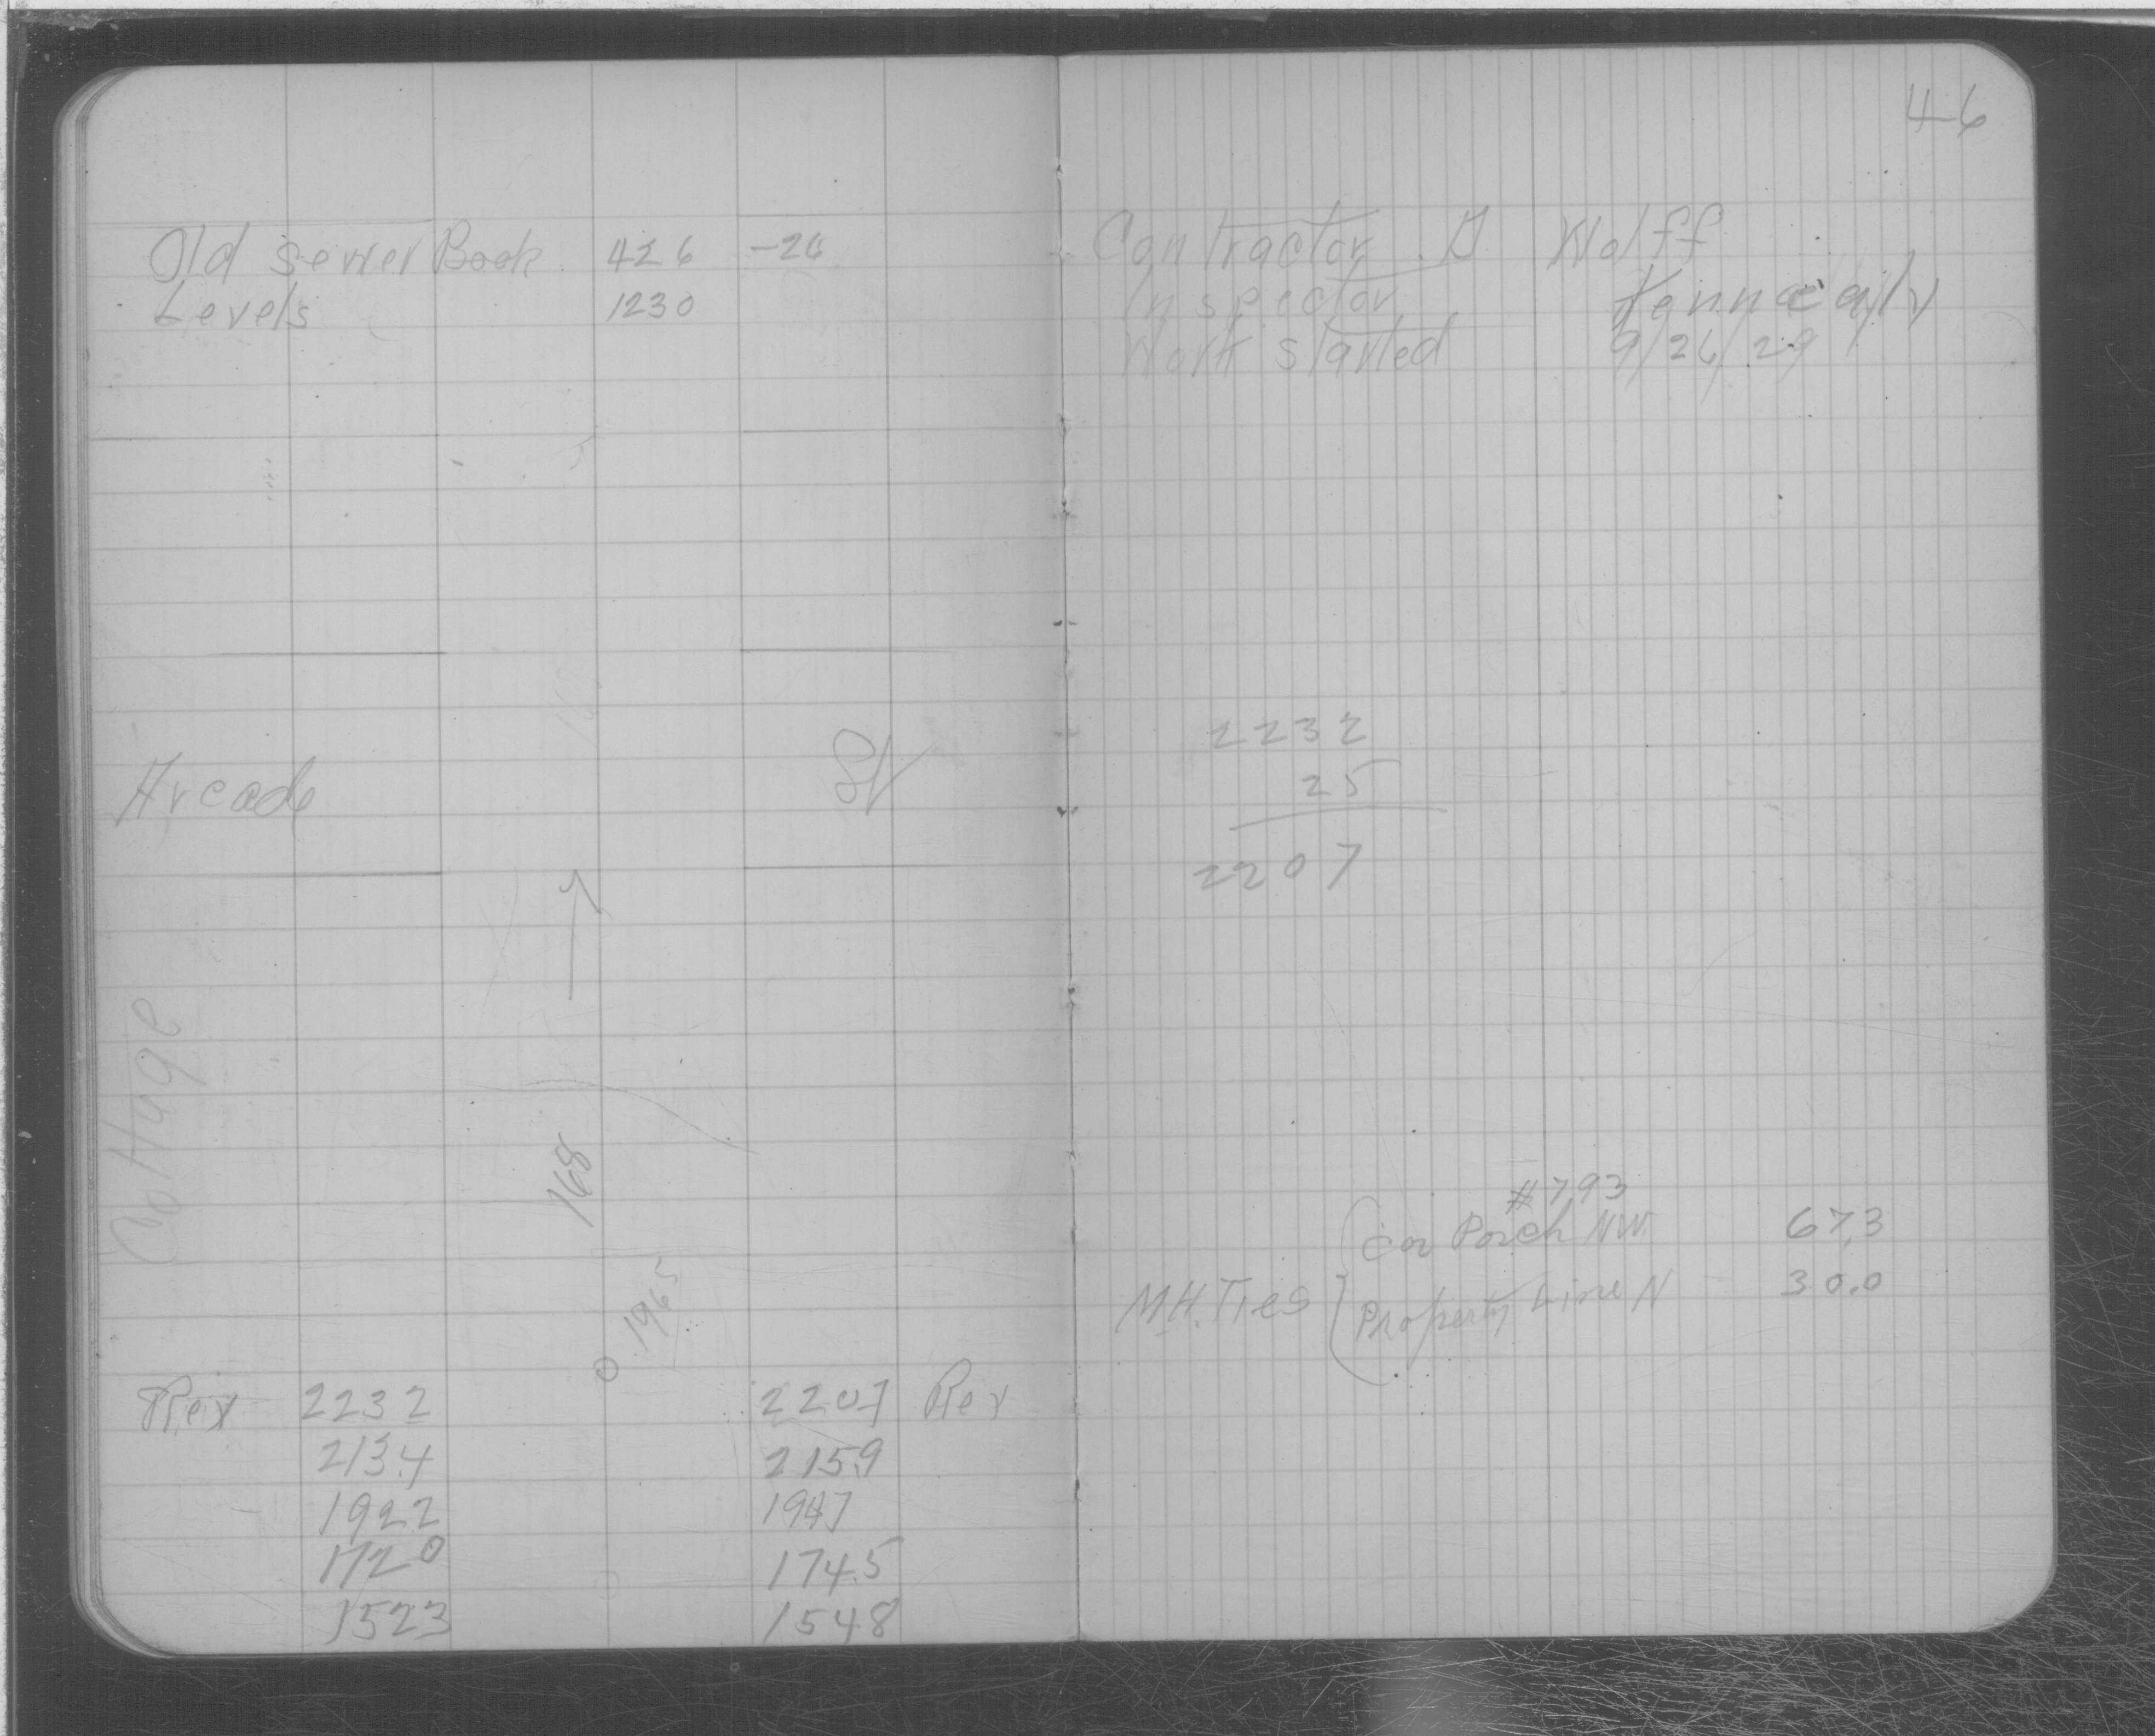 46
Old Sewer Book 426 -26
Levels 1230
Arcade St
Cottage
168
0 196.5
Rex 2232 2207 Rex
2134 2159
1922 1947
1720 1745
1523 1548
Contractor G Wolff
Inspector
Work started 9/26/29
2232
25
2207
#793
Cor Porch NW 67.3
M.H. Ties
Property Line N 30.0